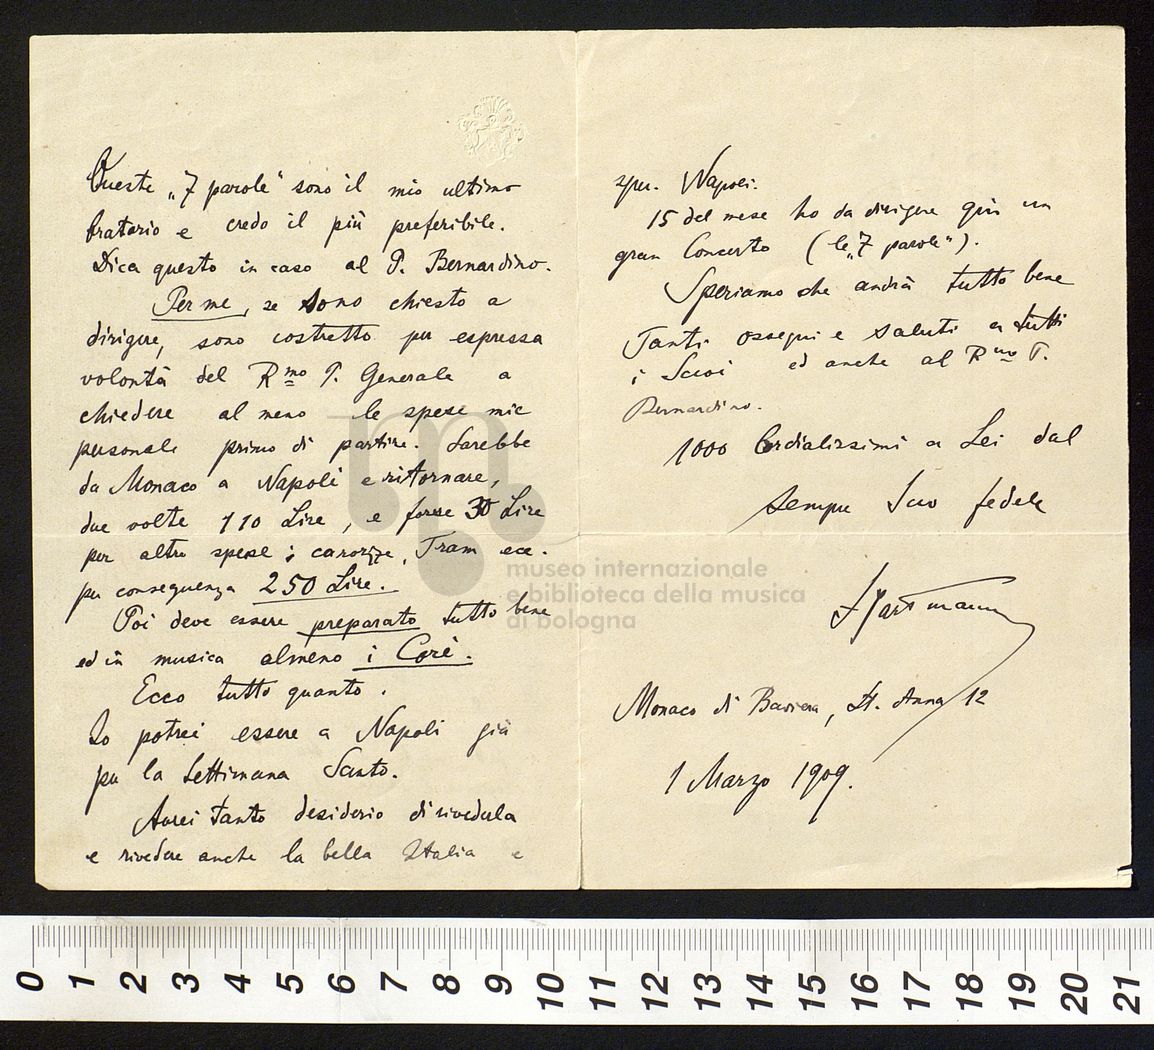 Queste „7 parole" sono il mio ultimo
Oratorio e credo il più preferibile.
Dica questo in caso al P. Bernardino.
Per me, se sono chiesto a
dirigere, sono costretto per espressa
volontà del Rmo P. Generale a
chiedere al meno le spese mie
personale primo di partire. Sarebbe
da Monaco a Napoli e ritornare,
due volte 110 Lire, e forse 30 Lire
per altre spese; carozze, Tram ecc.
per conseguenza 250 Lire.
Poi deve essere preparato tutto bene
ed in musica almeno i Cori.
Ecco tutto quanto.
Io potrei essere a Napoli già
per la Settimana Santo.
Avrei tanto desiderio di rivederla
e rivedere anche la bella Italia e
spec. Napoli.
15 del mese ho da dirigere qui un
gran Concerto (le „7 parole").
Speriamo che andrà tutto bene
Tanti ossequi e saluti a tutti
i Suoi ed anche al Rmo P.
Bernardino.
1000 Cordialissimi a Lei dal
sempre Suo fedele
Hartmann
Monaco di Baviera, St. Anna 12
1 Marzo 1909.
museo internazionale
e biblioteca della musica
di bologna
0 1 2 3 4 5 6 7 8 9 10 11 12 13 14 15 16 17 18 19 20 21